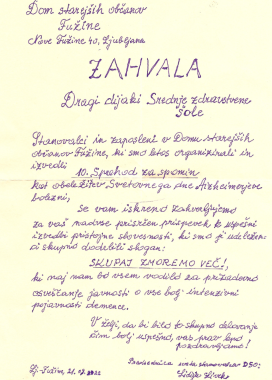 Dom starejših občanov
Fužine
Nove Fužine 40, Ljubljana
ZAHVALA
Dragi dijaki Srednje zdravstvene
šole
Stanovalci in zaposleni v Domu starejših
občanov Fužine, ki smo letos organizirali in
izvedli
10. Sprehod za spomin
kot obeležitev Svetovnega dne Alzheimerjeve
bolezni,
se vam iskreno zahvaljujemo
za vaš nadvse prisrčen prispevek k uspešni
izvedbi pristojne slovesnosti, ki smo ji udeleženci
skupno dodelili slogan:
SKUPAJ ZMOREMO VEČ!,
ki naj nam bo vsem vodilo za prizadevno
osveščanje javnosti o vse bolj intenzivni
pojavnosti demence.
V želji, da bi bilo to skupno delovanje
čim bolj uspešno, vas prav lepo
pozdravljamo!
sveta stanovalcev DSO:
Lj-Fužine, 21.09.2022